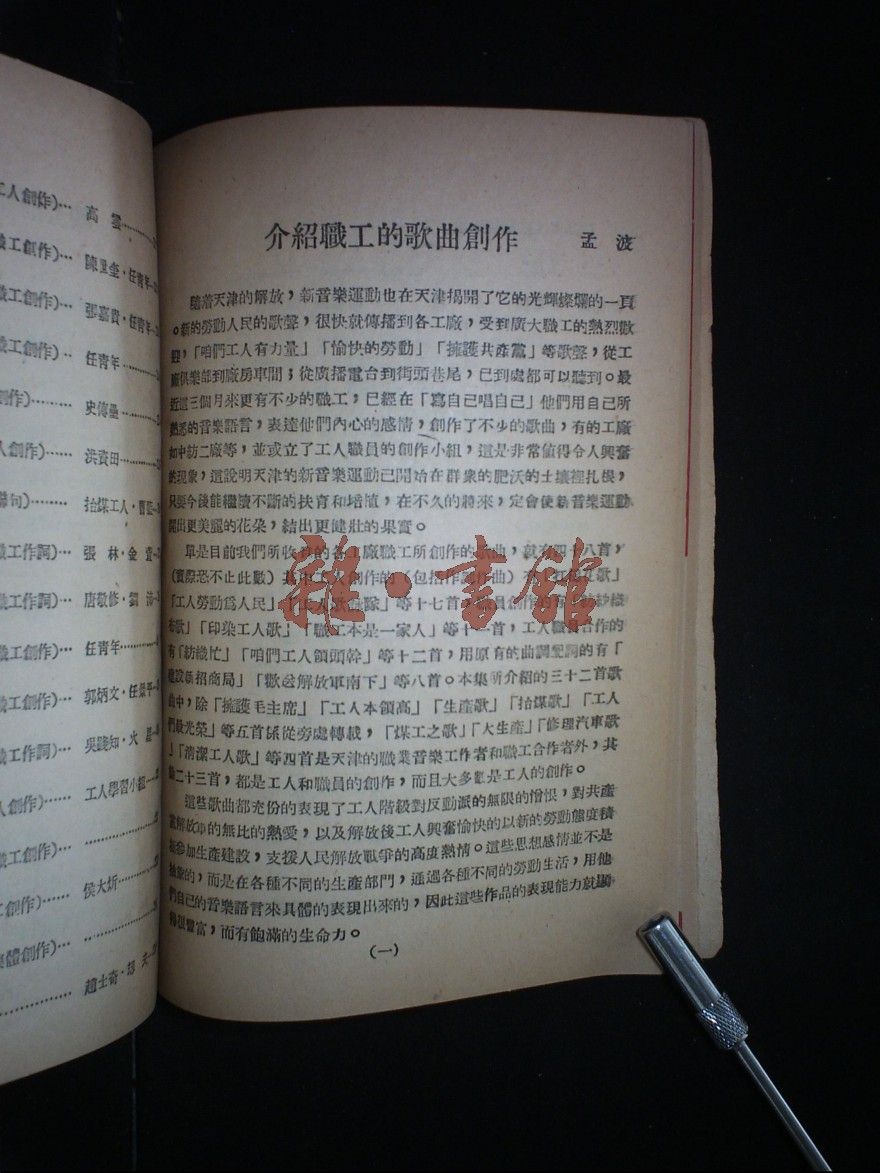 工人創作)… 高
職工創作)… 陳 · 任青年
職工創作)… 張嘉貴 · 任青年
職工創作)… 任青年
創作)… 史傳
工人創作)… 洪資田
聯句)… 抬煤工人 ·
職工作詞)… 張 林 · 金
職工作詞)… 唐敬修 · 劉
職工創作)… 任青年
職工創作)… 郭炳文 · 任景平
職工作詞)… 吳踐知 · 火 星
工人創作)… 工人學習小組
職工創作)…
工創作)… 侯大炘
集體創作)…
趙士奇 ·
介紹職工的歌曲創作 孟 波
隨着天津的解放，新音樂運動也在天津揭開了它的光輝燦爛的一頁
。新的勞動人民的歌聲，很快就傳播到各工廠，受到廣大職工的熱烈歡
迎，「咱們工人有力量」「愉快的勞動」「擁護共產黨」等歌聲，從工
廠俱樂部到廠房車間；從廣播電台到街頭巷尾，已到處都可以聽到。最
近這三個月來更有不少的職工，已經在「寫自己唱自己」他們用自己所
熟悉的音樂語言，表達他們內心的感情，創作了不少的歌曲，有的工廠
如中訪二廠等，並或立了工人職員的創作小組，這是非常值得令人興奮
的現象，這說明天津的新音樂運動已開始在群衆的肥沃的土壤裡扎根，
只要今後能繼續不斷的扶育和增值，在不久的將來，定會使新音樂運動
開出更美麗的花朶，結出更健壯的果實。
單是目前我們所收 的各工廠職工所創作的歌曲，就有四十八首，
(實際恐不止此數)其中工人創作的(包括作 作曲)有「 歌」
「工人勞動爲人民」「工人歌詠隊」等十七首，職員創作的有「 紡織
歌」「印染工人歌」「職工本是一家人」等十一首，工人職員合作的
有「紡織忙」「咱們工人領頭幹」等十二首，用原有的曲調配詞的有「
建設新招商局」「歡送解放軍南下」等八首。本集所介紹的三十二首歌
曲中，除「擁護毛主席」「工人本領高」「生產歌」「抬煤歌」「工人
們最光榮」等五首係從旁處轉載，「煤工之歌」「大生產」「修理汽車歌
」「清潔工人歌」等四首是天津的職業音樂工作者和職工合作者外，其
餘二十三首，都是工人和職員的創作，而且大多數是工人的創作。
這些歌曲都充份的表現了工人階級對反動派的無限的憎恨，對共產
黨解放軍的無比的熱愛，以及解放後工人興奮愉快的以新的勞動態度積
極參加生產建設，支援人民解放戰爭的高度熱情。這些思想感情並不是
抽象的，而是在各種不同的生產部門，通過各種不同的勞動生活，用他
們自己的音樂語言來具體的表現出來的，因此這些作品的表現能力就顯
得很豐富，而有飽滿的生命力。
(一)
雜·書館